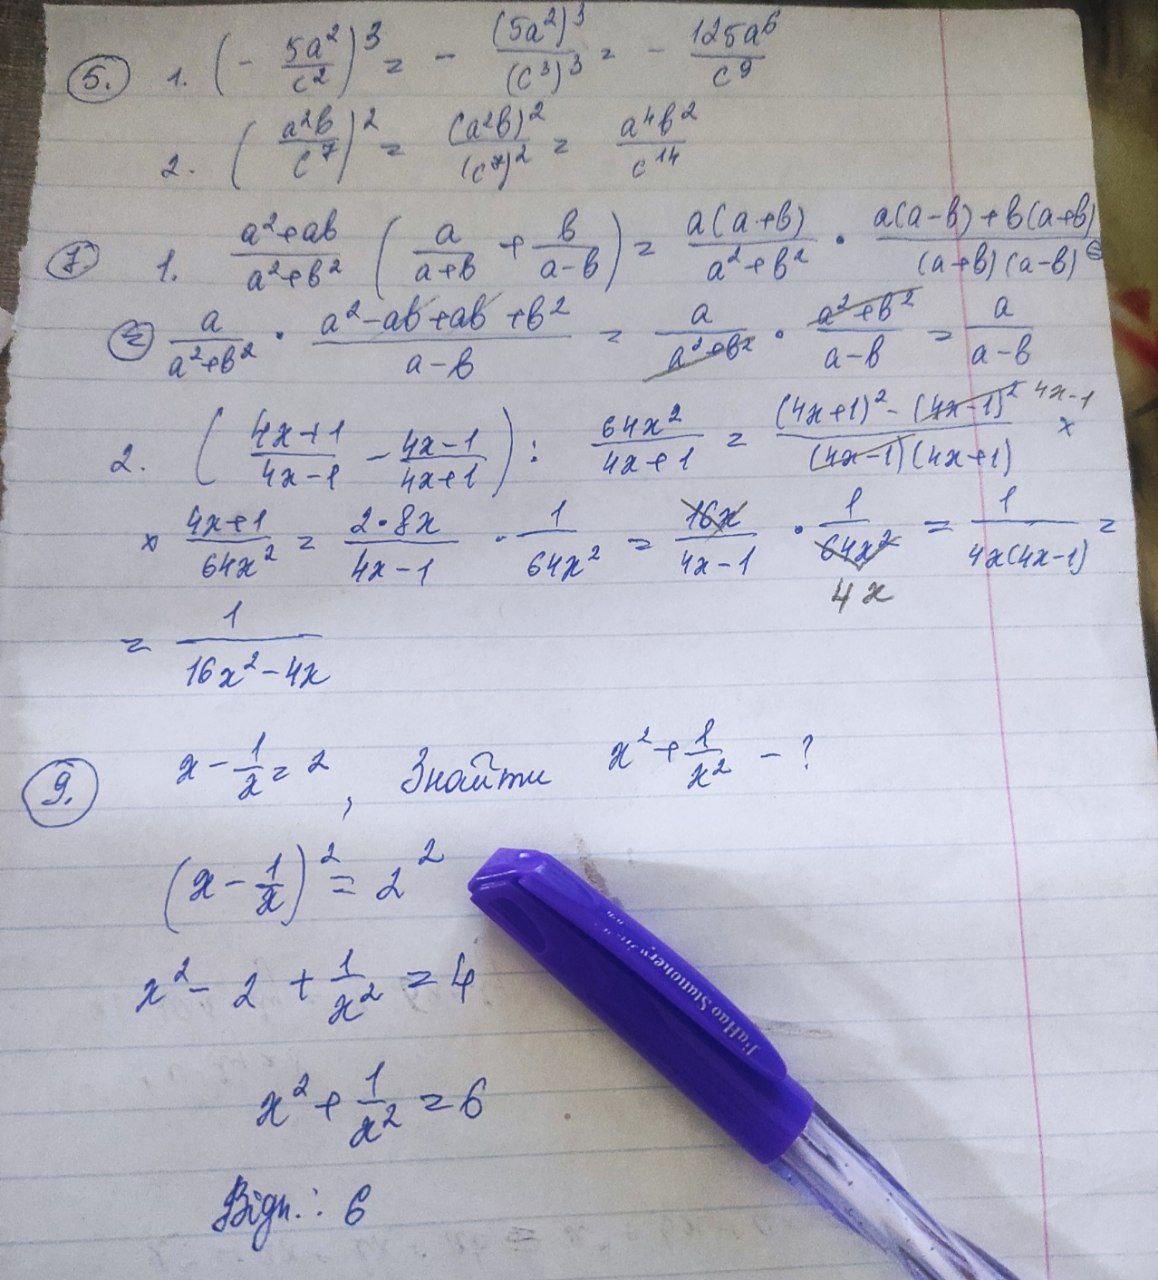 5. 1. (- 5a²/c²)³ = - (5a²)³/(c³)³ = - 125a⁶/c⁹
2. (a²b/c⁷)² = (a²b)²/(c⁷)² = a⁴b²/c¹⁴
7. 1. a²+ab/a²+b² (a/a+b + b/a-b) = a(a+b)/a²+b² · a(a-b)+b(a+b)/(a+b)(a-b) =
= a/a²+b² · a²-ab+ab+b²/a-b = a/a²+b² · a²+b²/a-b = a/a-b
2. (4x+1/4x-1 - 4x-1/4x+1) : 64x²/4x+1 = (4x+1)²-(4x-1)²/(4x-1)(4x+1) 4x-1 ×
× 4x+1/64x² = 2·8x/4x-1 · 1/64x² = 16x/4x-1 · 1/64x² = 1/4x(4x-1) =
4x
= 1/16x²-4x
9. x - 1/x = 2, Знайти x² + 1/x² - ?
(x - 1/x)² = 2²
x² - 2 + 1/x² = 4
x² + 1/x² = 6
Відп.: 6
JiaHao Stationery